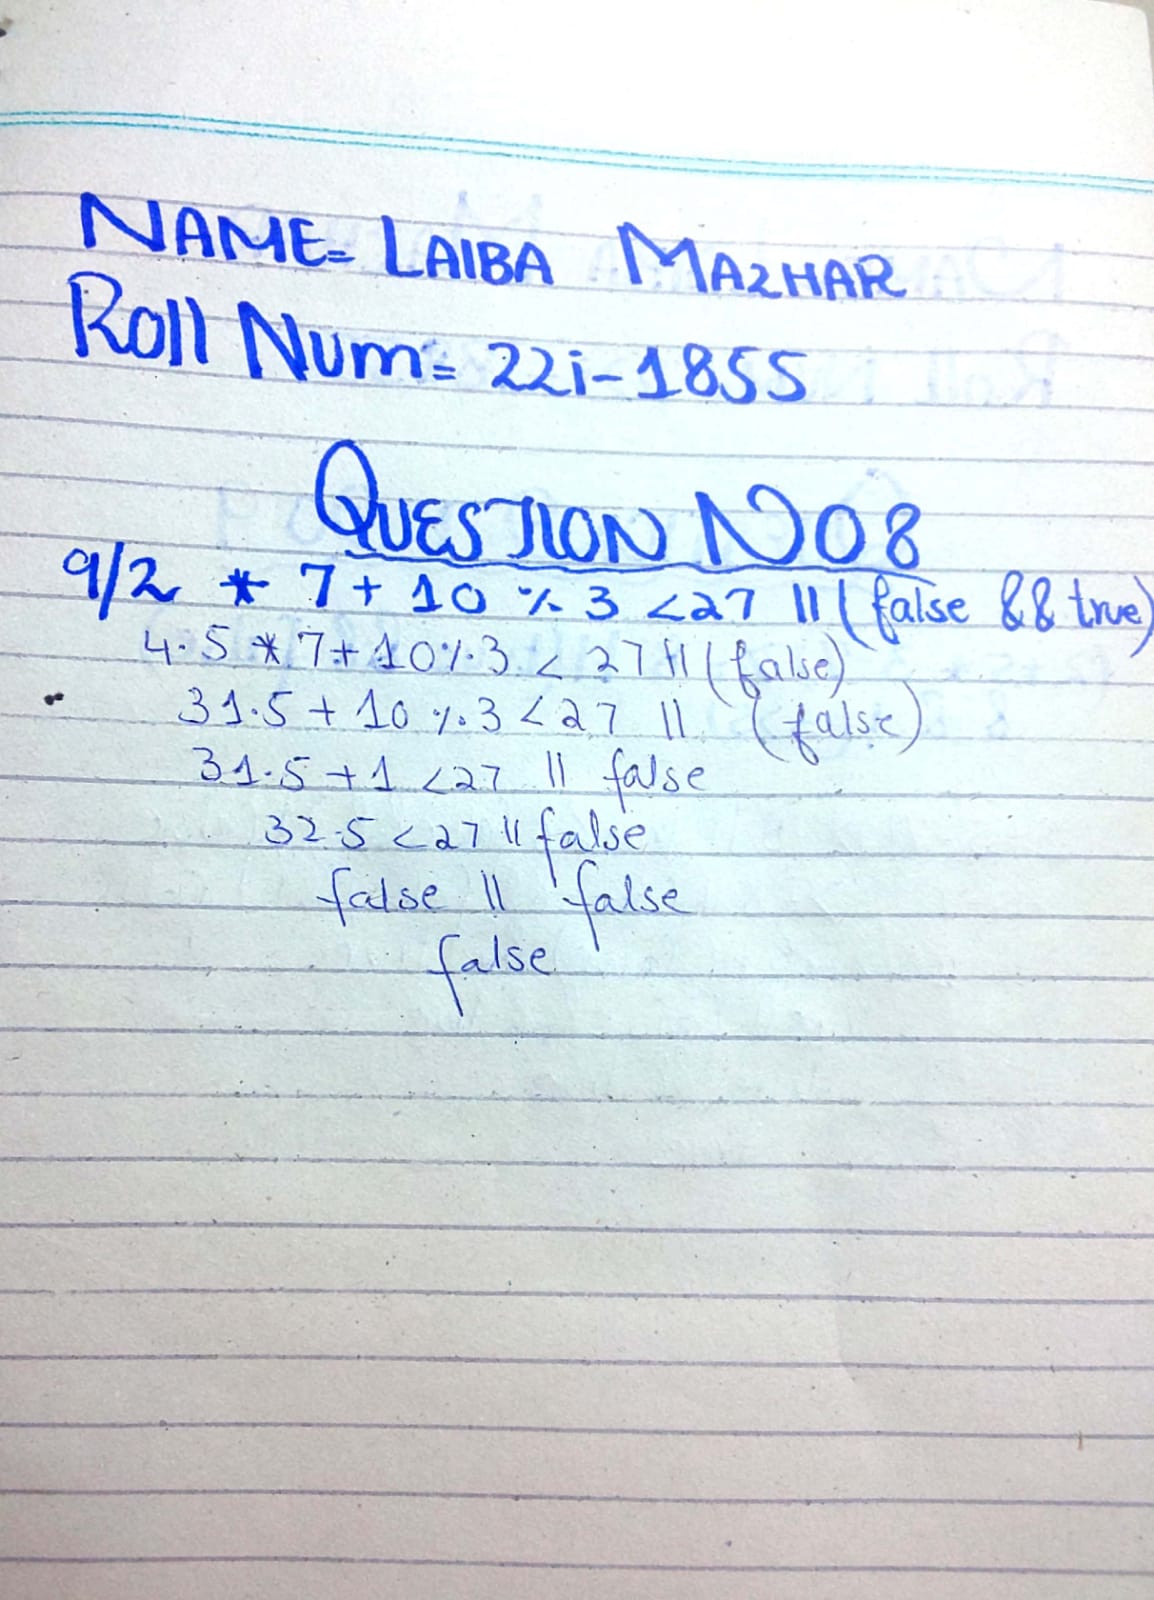 NAME= LAIBA MAZHAR
Roll Num= 22i-1855
QUESTION NO 8
9/2 * 7 + 10 % 3 < 27 || (false && true)
4.5 * 7 + 10 % 3 < 27 || (false)
31.5 + 10 % 3 < 27 || (false)
31.5 + 1 < 27 || false
32.5 < 27 || false
false || false
false